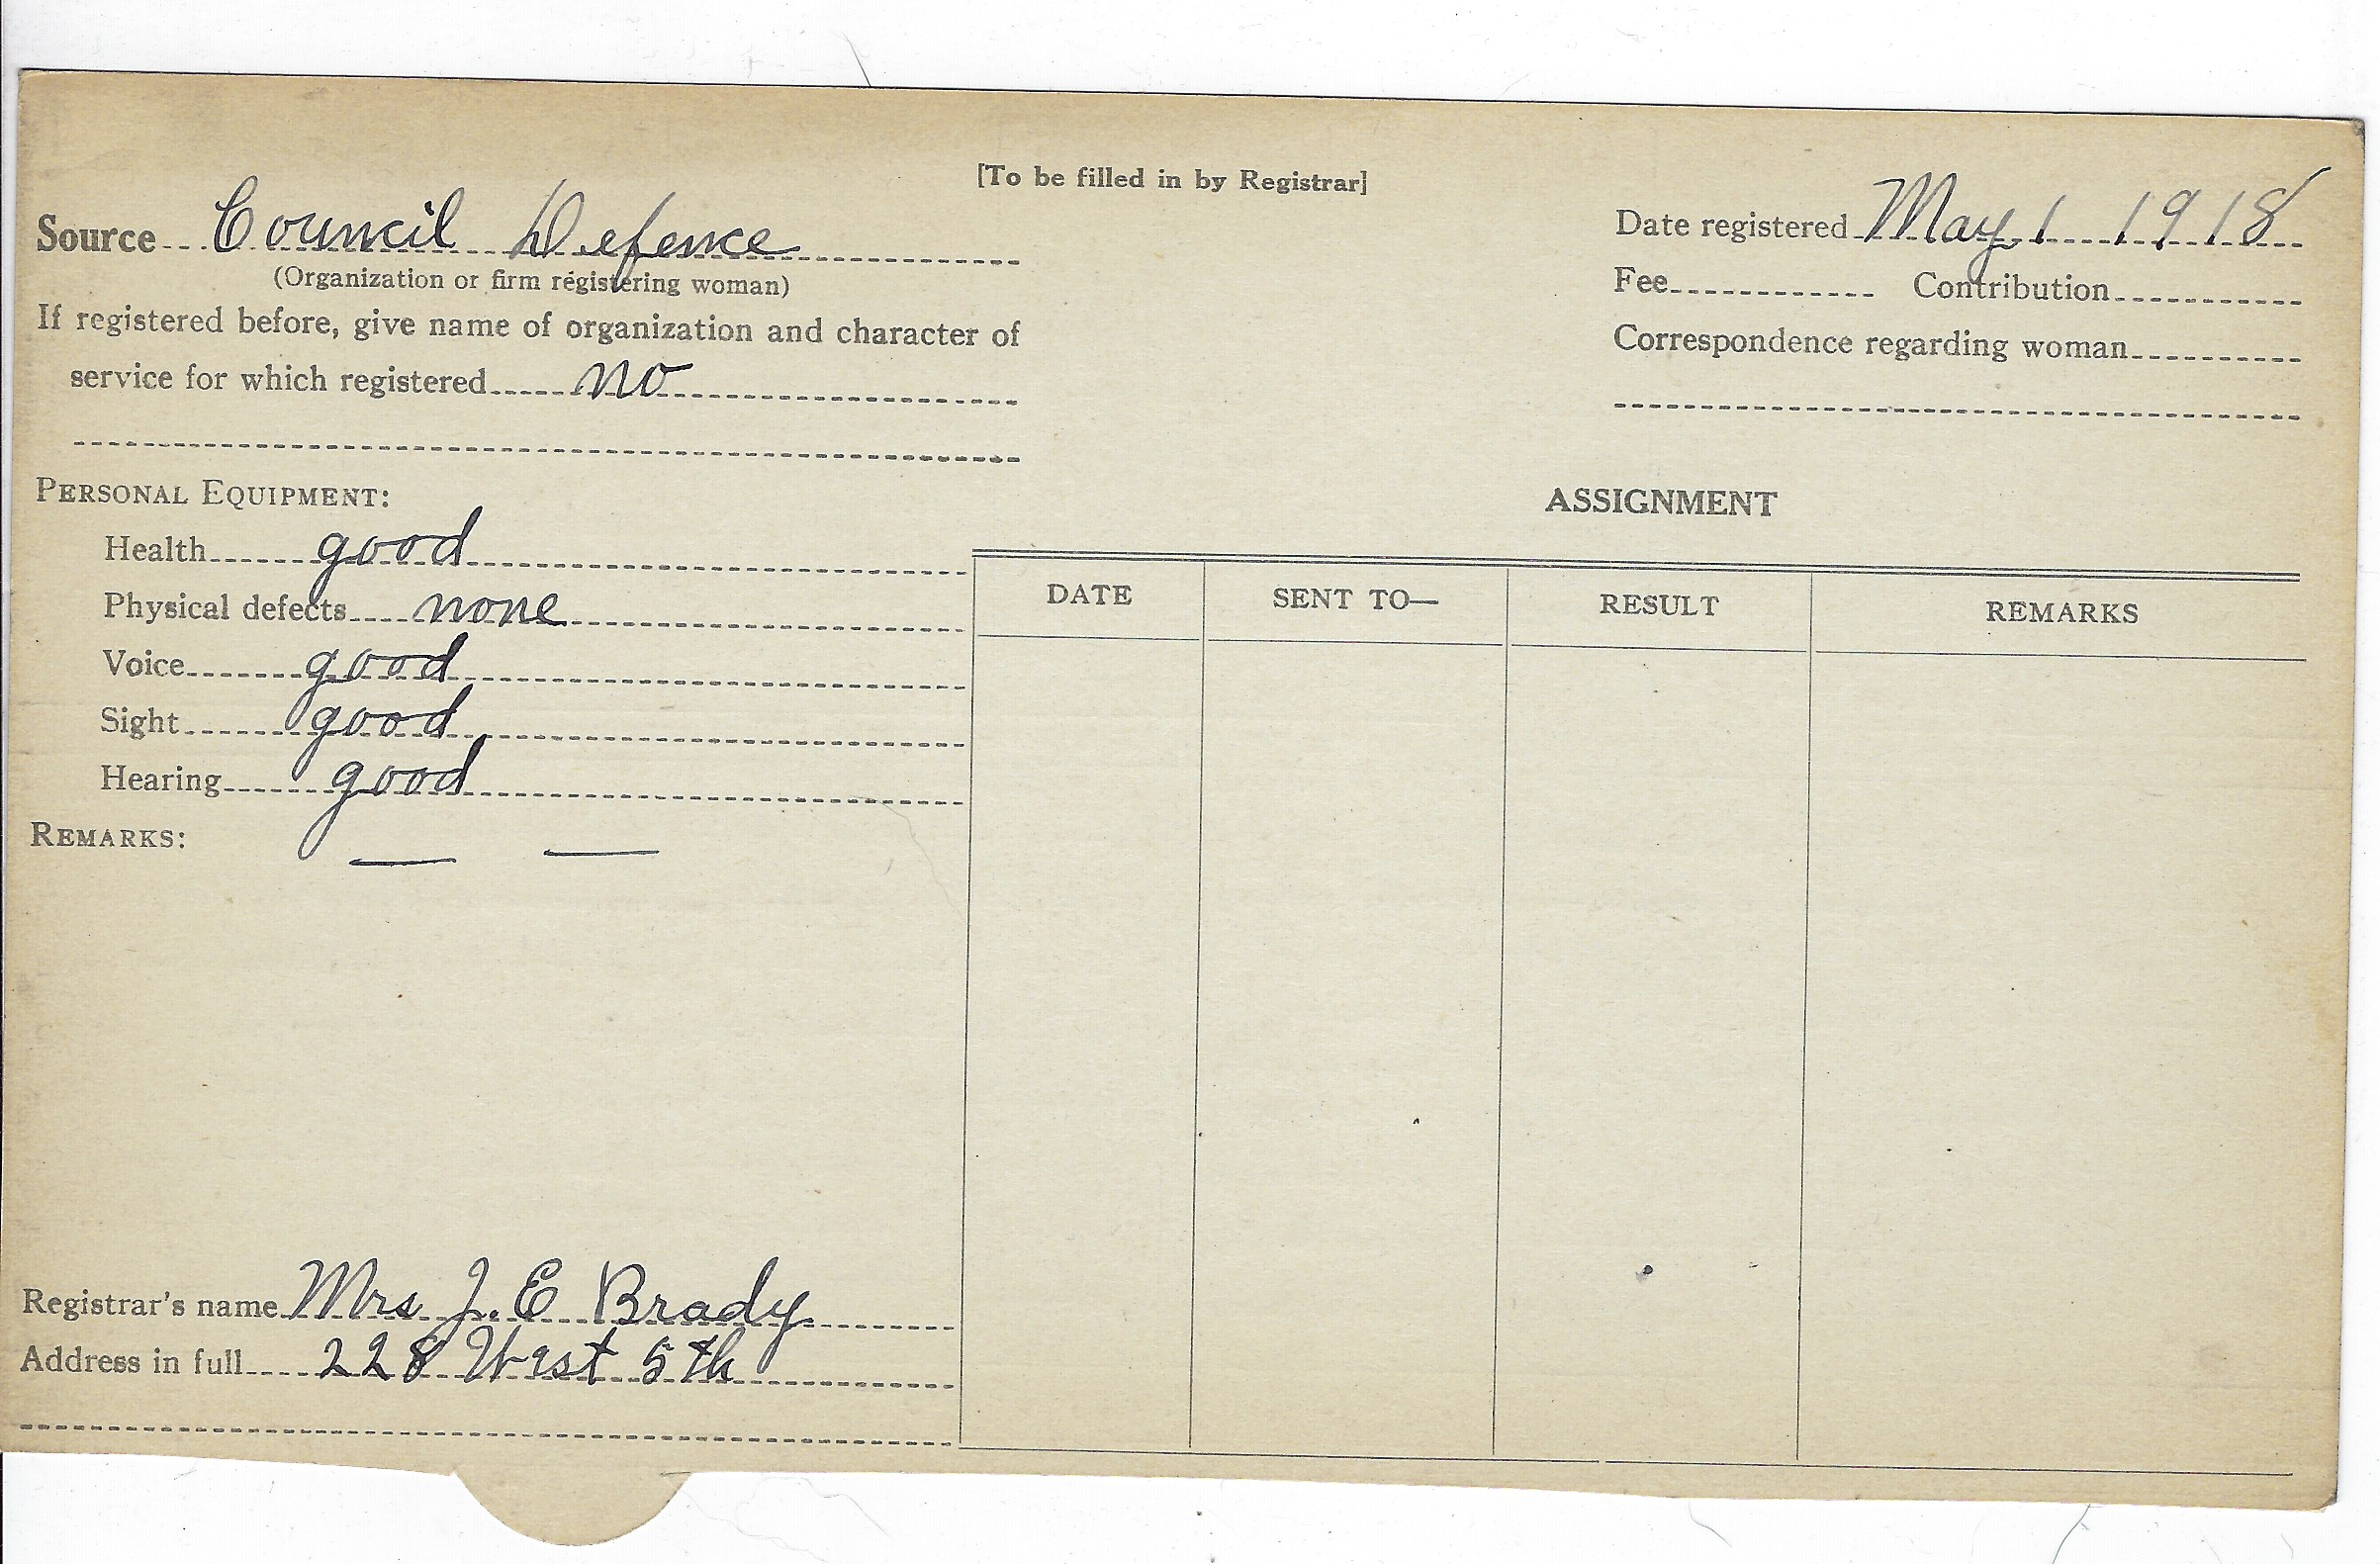 [To be filled in by Registrar]
Source Council Defence
(Organization or firm registering woman)
If registered before, give name of organization and character of
service for which registered no
Date registered May 1 1918
Fee Contribution
Correspondence regarding woman
PERSONAL EQUIPMENT:
Health good
Physical defects none
Voice good
Sight good
Hearing good
REMARKS: — —
ASSIGNMENT
DATE SENT TO— RESULT REMARKS
Registrar's name Mrs J. E Brady
Address in full 228 West 5th